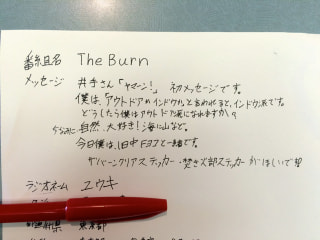 番組名 The Burn
メッセージ 井手さん「ヤマーン!」 初メッセージです。
僕は、「アウトドアかインドアか」と言われると、インドア派です。
どうしたら僕はアウトドア派になれますか?
ちなみに自然、大好き!海に山など。
今日僕は、1日中ドヨコと一緒です。
サバーンクリアステッカー・焚き火部ステッカーがほしいで
ラジオネーム ユウキ
都道府県 東京都